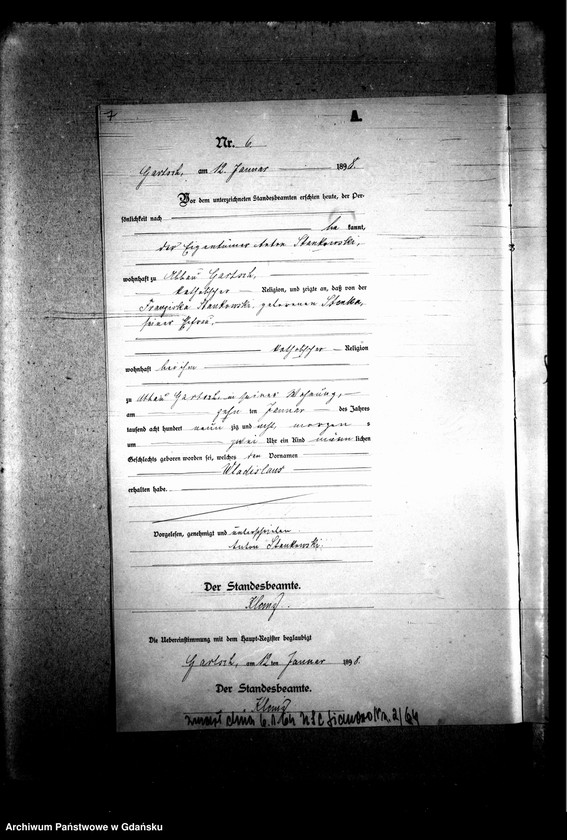 7
A.
Nr. 6
Gartsch, am 12. Januar 1898.
Vor dem unterzeichneten Standesbeamten erschien heute, der Per-
sönlichkeit nach
be kannt,
der Eigentümer Anton Stankowski,
wohnhaft zu Abbau Gartsch,
katholischer Religion, und zeigte an, daß von der
Franziska Stankowski, geborenen
seiner Ehefrau,
katholischer Religion
wohnhaft bei ihm
zu Abbau Gartsch in seiner Wohnung,
am zehn ten Januar des Jahres
tausend acht hundert neun zig und acht morgens
um zwei Uhr ein Kind männ lichen
Geschlechts geboren worden sei, welches den Vornamen
Wladislaus
erhalten habe.
Vorgelesen, genehmigt und unterschrieben
Anton Stankowski.
Der Standesbeamte.
Die Uebereinstimmung mit dem Haupt-Register beglaubigt
Gartsch, am 12 ten Januar 1898.
Der Standesbeamte.
zmarł dnia 6.1.64 USC Nr. 2/64
Archiwum Państwowe w Gdańsku